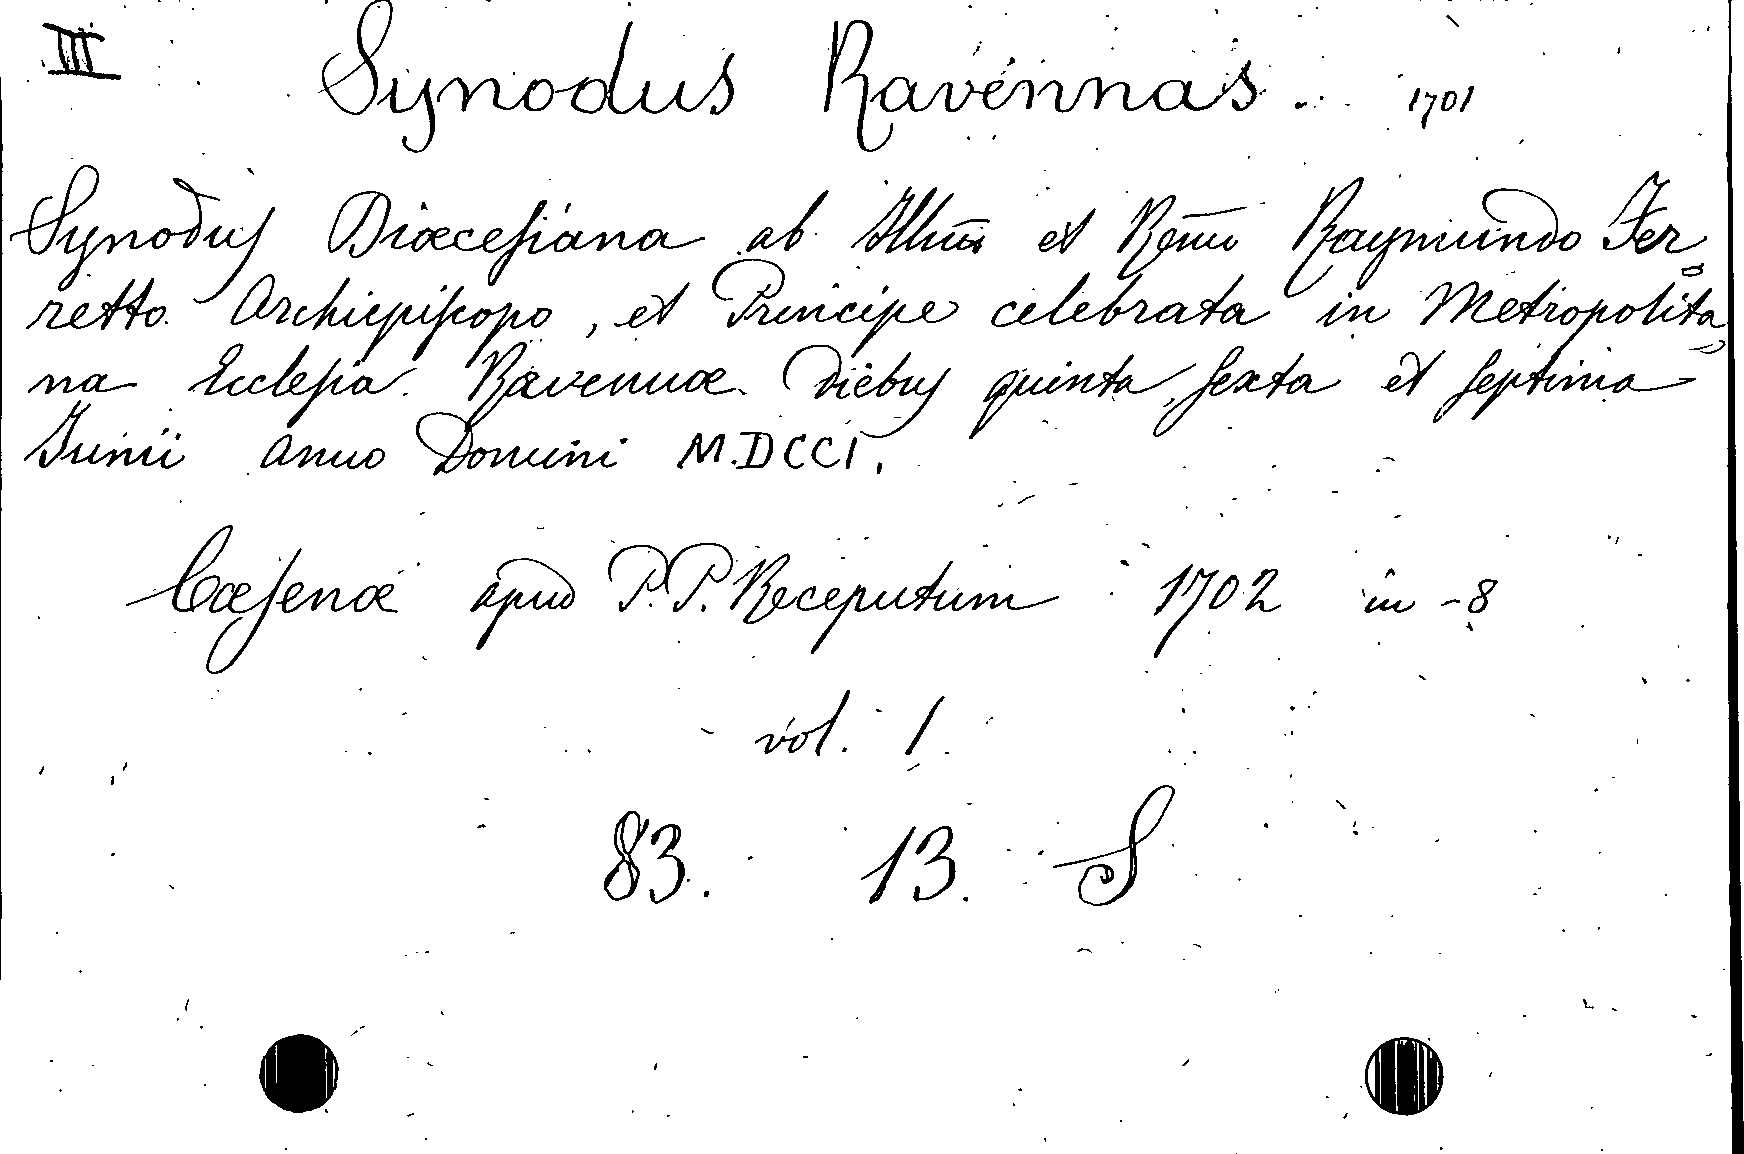 III
Synodus Ravennas. 1701
Synodus Diœcesiana ab Illmo et Rẽmo Raymundo Fer„
retto Archiepiscopo, et Principe celebrata in Metropolita„
na Ecclesia Ravennæ diebus quinta, sexta et septima
Junii anno Domini M.DCCI.
Cæsenæ apud P.P. Receputum 1702 in-8
vol. 1
83. 13. S